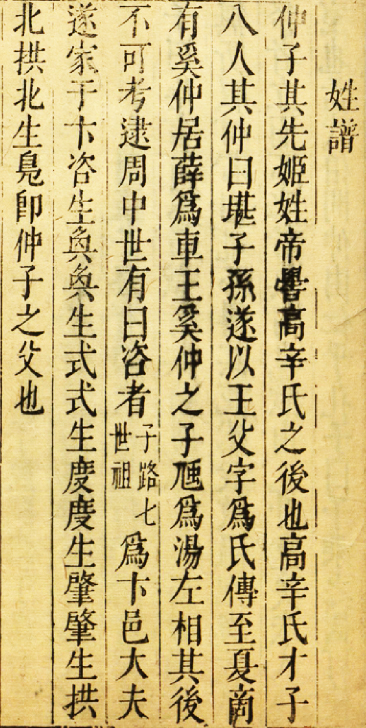 姓譜
仲子其先姬姓帝嚳高辛氏之後也高辛氏才子
八人其仲曰堪子孫遂以王父字爲氏傳至夏商
有奚仲居薛爲車王奚仲之子虺爲湯左相其後
不可考逮周中世有曰咨者子路七世祖爲卞邑大夫
遂家于卞咨生奐奐生式式生度度生肇肇生拱
北拱北生鳧卽仲子之父也